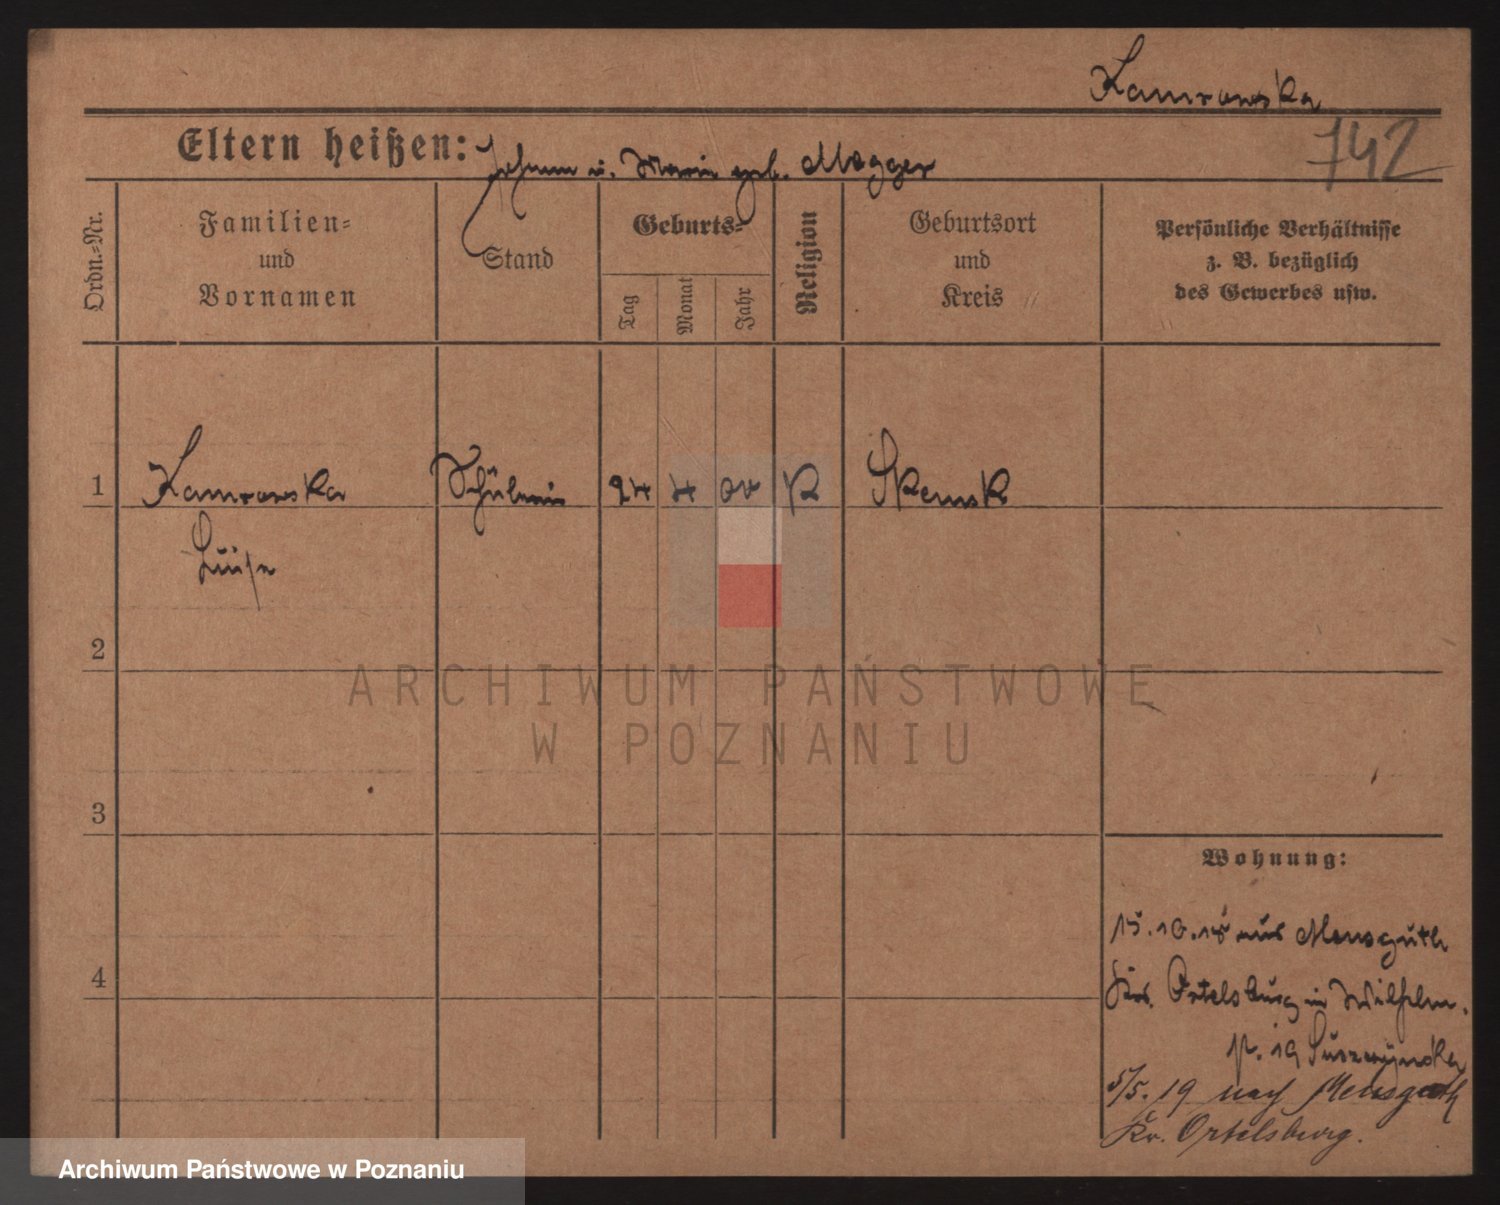 Kamrowska
742
Eltern heißen: Johann u. Marie geb. Magger
Ordn.=Nr.
Familien=
und
Vornamen
Stand
Geburts=
Tag
Monat
Jahr
Religion
Geburtsort
und
Kreis
Persönliche Verhältnisse
z. B. bezüglich
des Gewerbes usw.
1 Kamrowska Schülerin 24 4 04 K
Luise
2
ARCHIWUM PAŃSTWOWE
W POZNANIU
3
Wohnung:
15.10.18 aus Mensguth
4
Krs. Ortelsburg in Wilhelm.
19
5/5. 19 nach Mensguth
Kr. Ortelsburg.
Archiwum Państwowe w Poznaniu